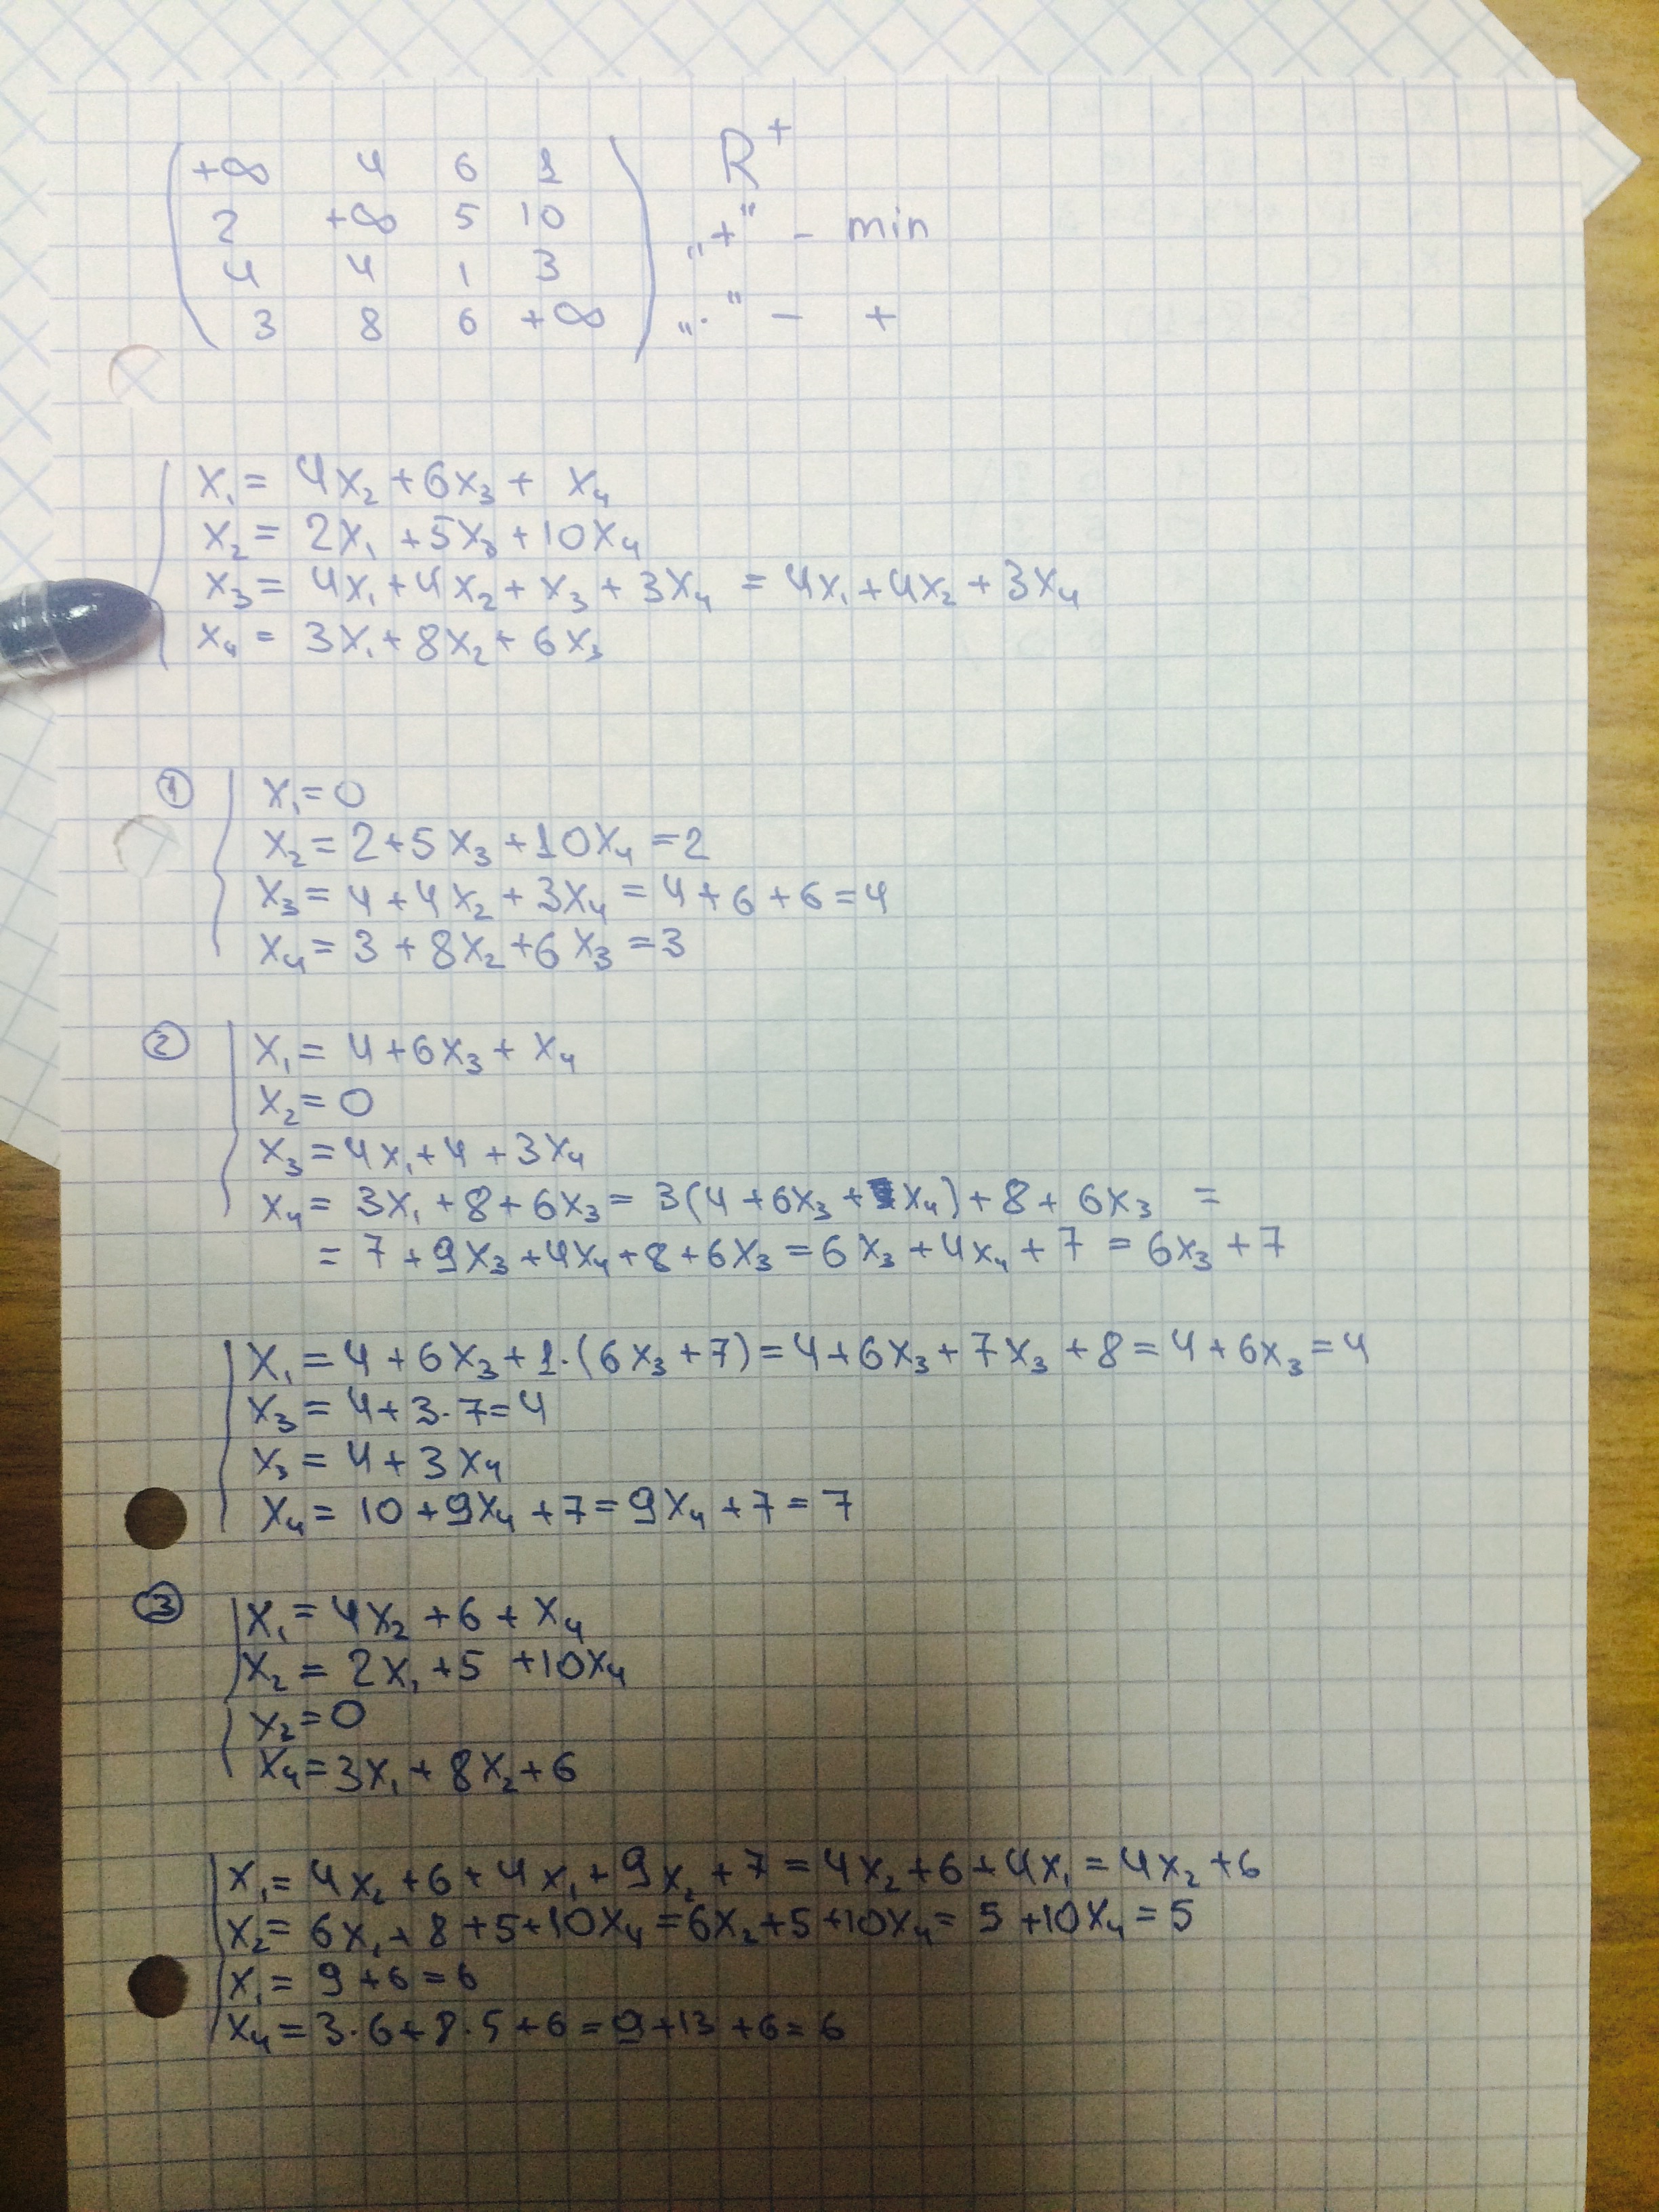 +∞ 4 6 1
2 +∞ 5 10
4 4 1 3
3 8 6 +∞
R⁺
„+" - min
„·" - +
x₁ = 4x₂ + 6x₃ + x₄
x₂ = 2x₁ + 5x₃ + 10x₄
x₃ = 4x₁ + 4x₂ + x₃ + 3x₄ = 4x₁ + 4x₂ + 3x₄
x₄ = 3x₁ + 8x₂ + 6x₃
① x₁ = 0
x₂ = 2 + 5x₃ + 10x₄ = 2
x₃ = 4 + 4x₂ + 3x₄ = 4 + 6 + 6 = 4
x₄ = 3 + 8x₂ + 6x₃ = 3
② x₁ = 4 + 6x₃ + x₄
x₂ = 0
x₃ = 4x₁ + 4 + 3x₄
x₄ = 3x₁ + 8 + 6x₃ = 3(4 + 6x₃ + x₄) + 8 + 6x₃ =
= 7 + 9x₃ + 4x₄ + 8 + 6x₃ = 6x₃ + 4x₄ + 7 = 6x₃ + 7
x₁ = 4 + 6x₃ + 1·(6x₃ + 7) = 4 + 6x₃ + 7x₃ + 8 = 4 + 6x₃ = 4
x₃ = 4 + 3·7 = 4
x₃ = 4 + 3x₄
x₄ = 10 + 9x₄ + 7 = 9x₄ + 7 = 7
③ x₁ = 4x₂ + 6 + x₄
x₂ = 2x₁ + 5 + 10x₄
x₂ = 0
x₄ = 3x₁ + 8x₂ + 6
x₁ = 4x₂ + 6 + 4x₁ + 9x₂ + 7 = 4x₂ + 6 + 4x₁ = 4x₂ + 6
x₂ = 6x₁ + 8 + 5 + 10x₄ = 6x₂ + 5 + 10x₄ = 5 + 10x₄ = 5
x₁ = 9 + 6 = 6
x₄ = 3·6 + 8·5 + 6 = 9 + 13 + 6 = 6